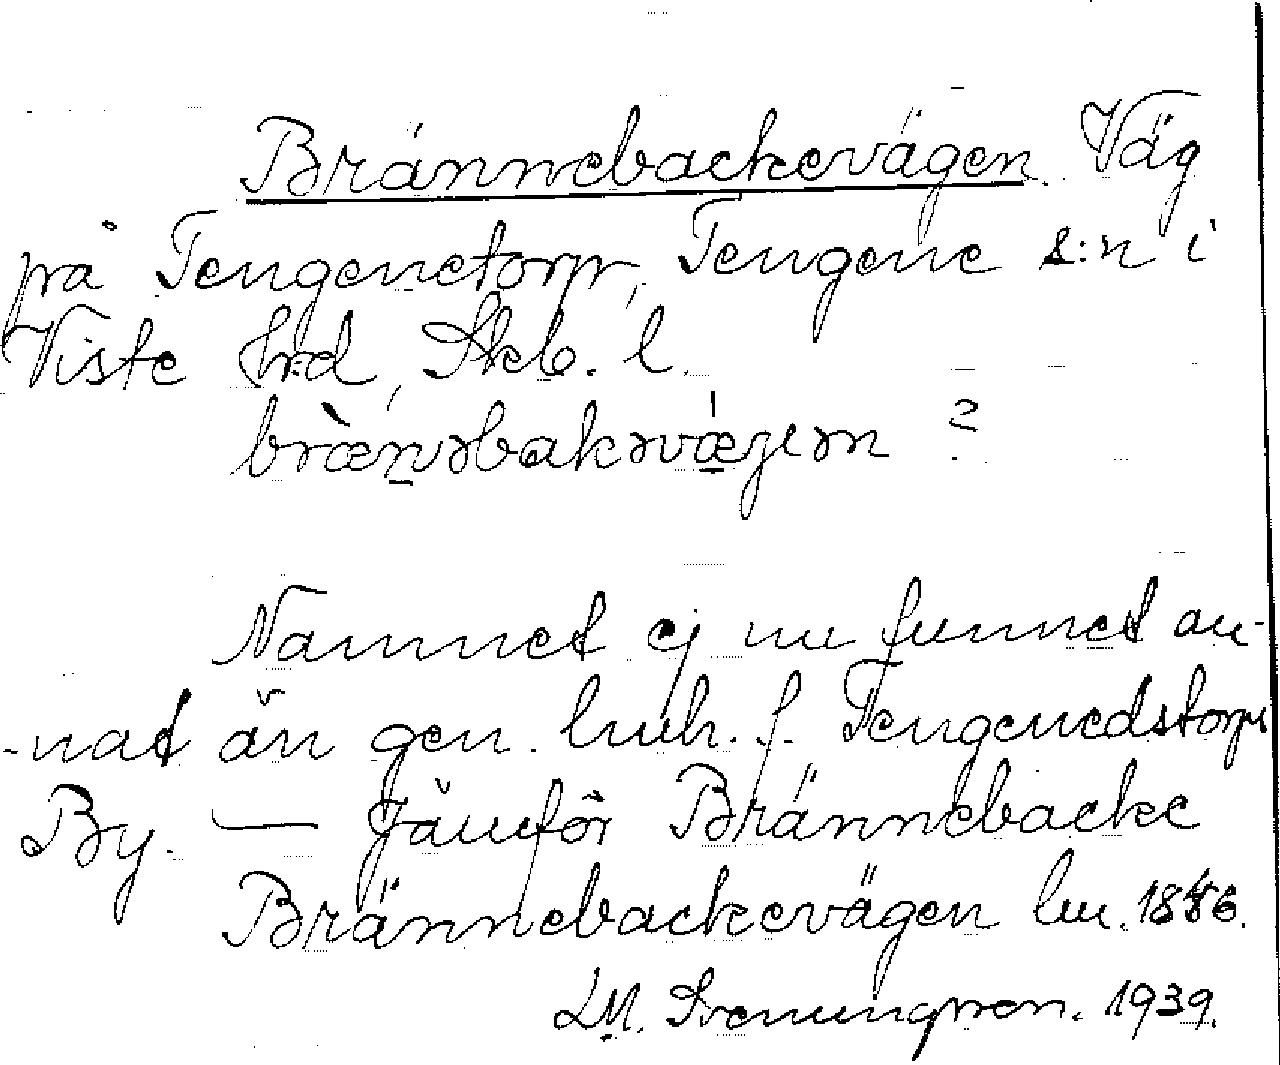 Brännebackevägen. Väg
på Tengenetorp, Tengene s:n i
Viste hrd, Skb. l.
brænəbakəvægen ?
Namnet ej nu funnet an-
-nat än gen. lmh. f. Tengenedstorps
By. — Jämför Brännebacke
Brännebackevägen lm. 1886.
LM. Svenungsson. 1939.